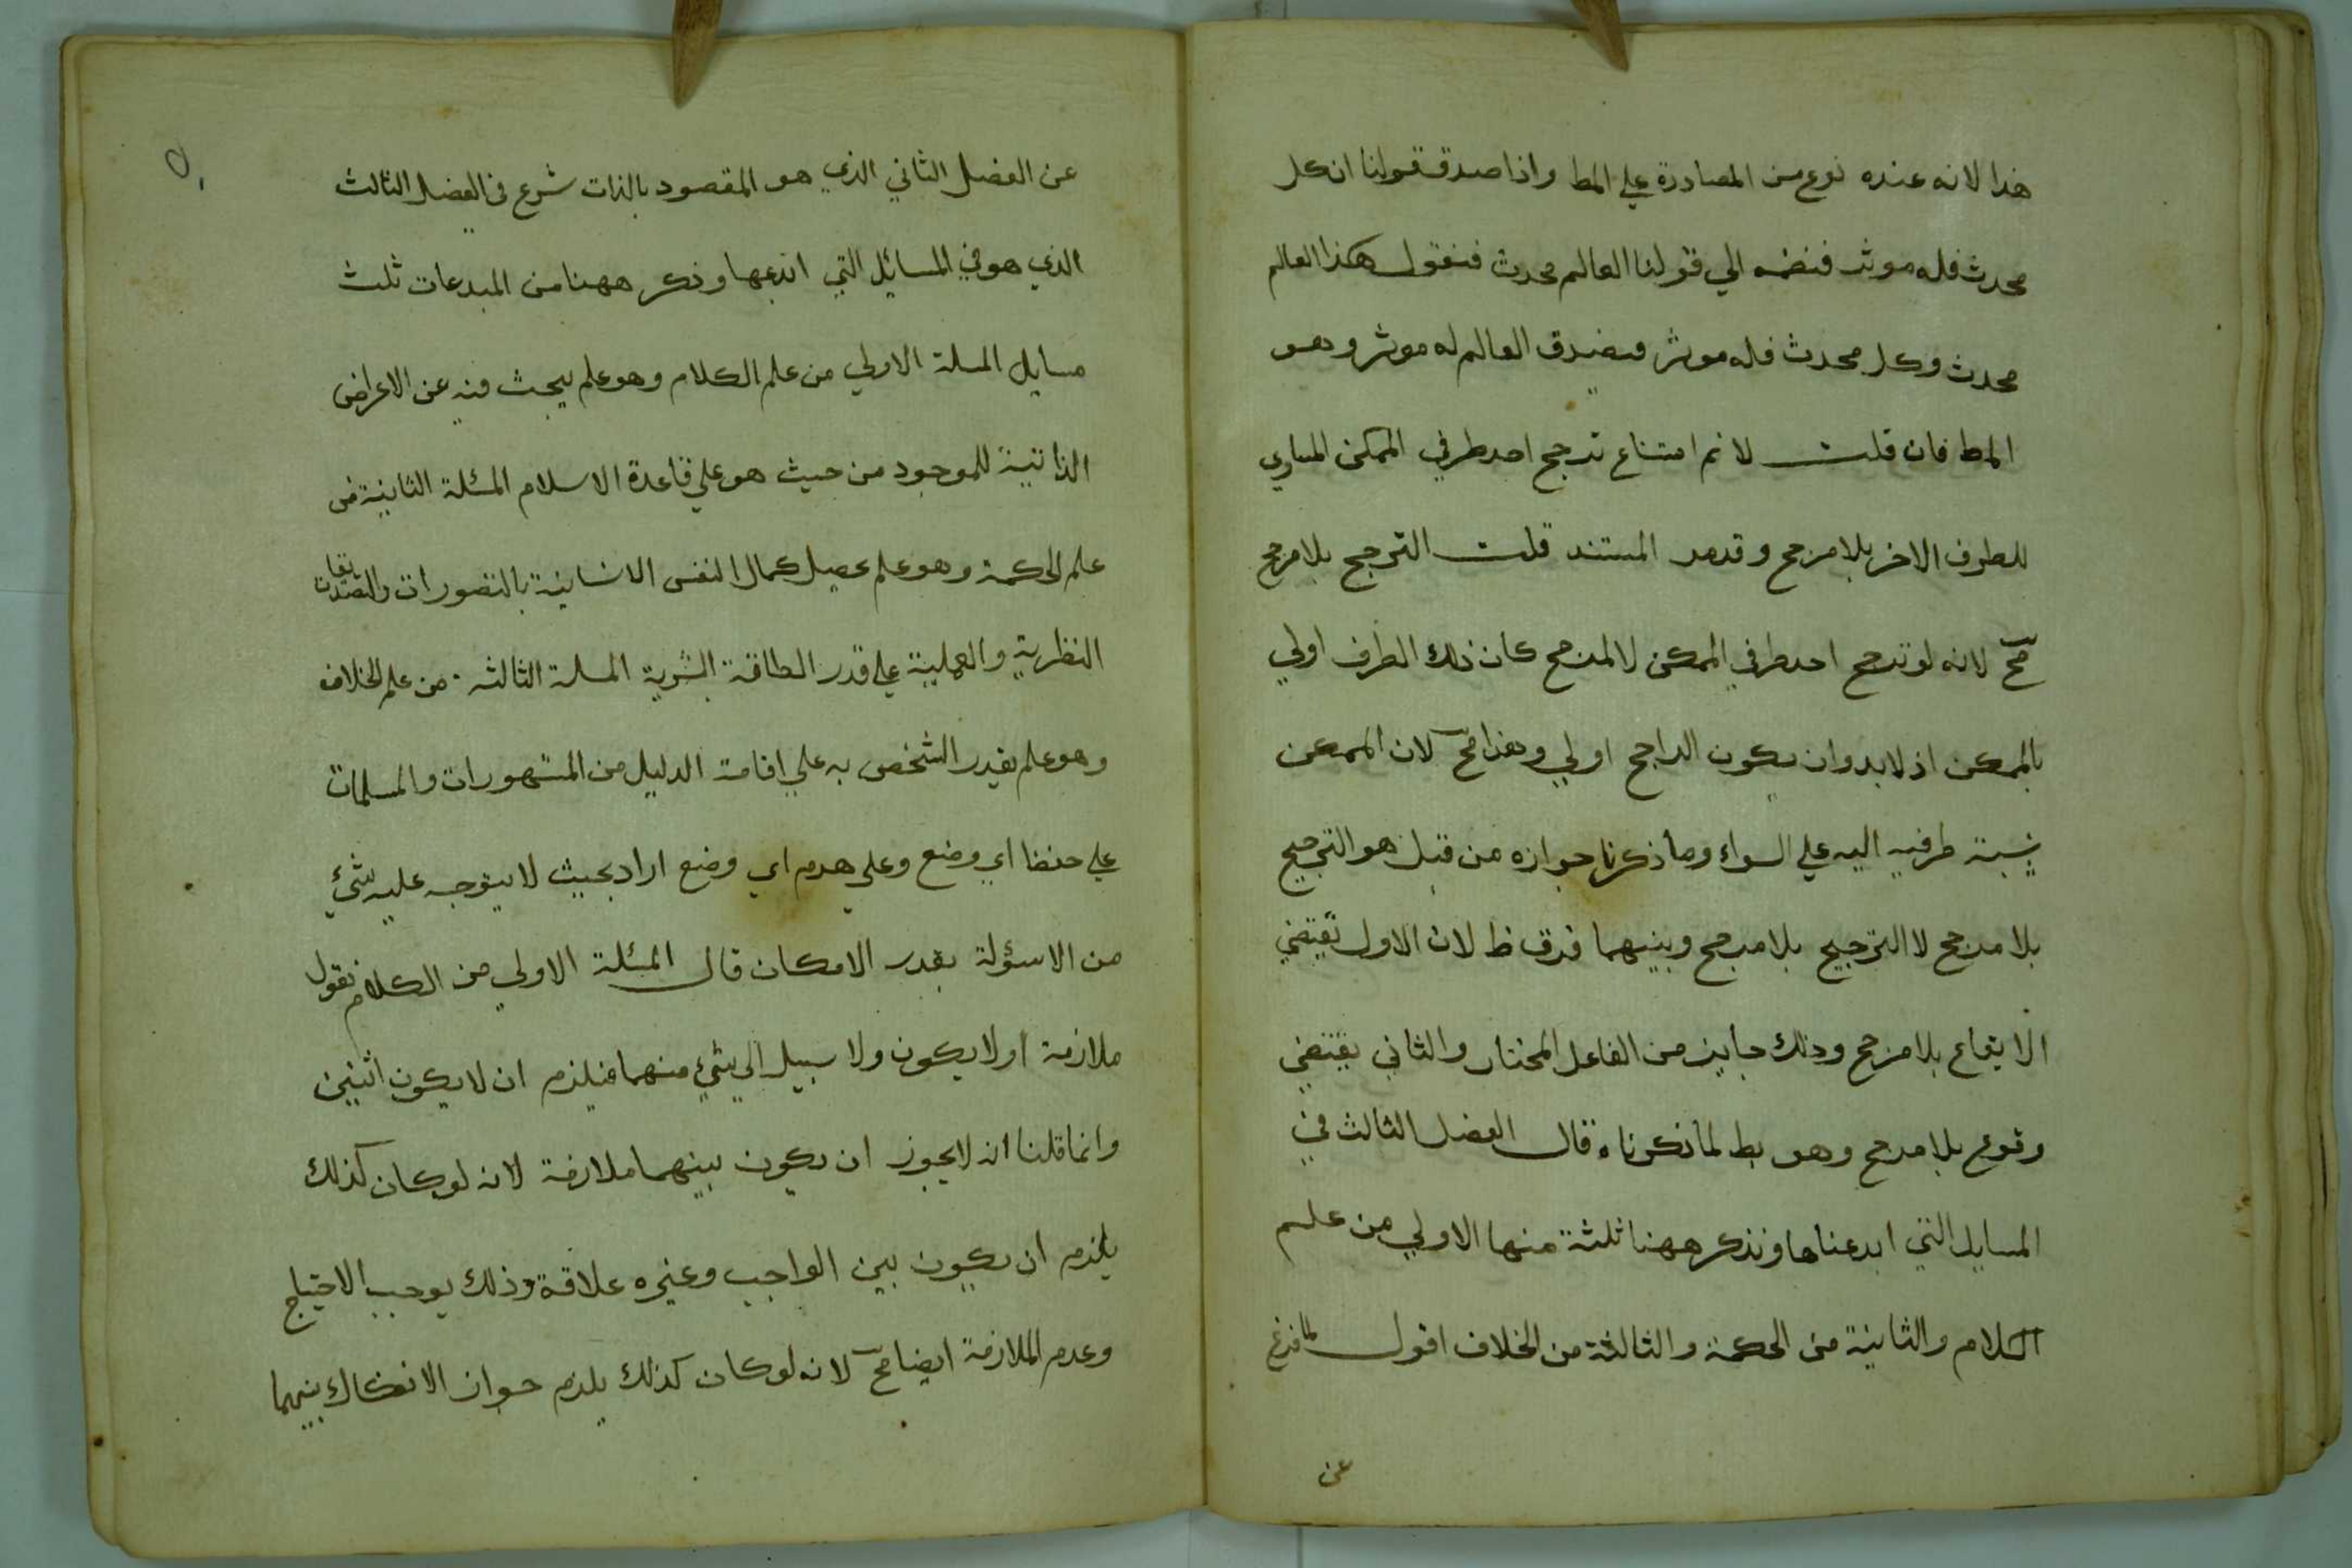 هذا لانه عنده نوع من المصادرة علي المط واذا صدق قولنا ان كل
محدث فله موثر فنضمه الي قولنا العالم محدث فنقول هكذا العالم
محدث وكل محدث فله موثر فيصدق العالم له موثر وهو
المط فان قلت لانم امتناع ترجح احد طرفي الممكن المساوي
للطرف الاخر بلا مرجح وقدمر المستند قلت الترجح بلا مرجح
مح لانه لو ترجح احد طرفي الممكن لا لمرجح كان ذلك الطرف اولي
بالممكن اذ لا بد وان يكون الراجح اولي وهذا مح لان الممكن
نسبة طرفيه اليه علي السواء وما ذكرنا جوازه من قبل هو الترجيح
بلا مرجح لا الترجيح بلا مرجح وبينهما فرق ظ لان الاول يقتضي
الايقاع بلا مرجح وذلك جايز من الفاعل المختار والثاني يقتضي
وقوع بلا مرجح وهو بط لما ذكرناه قال الفصل الثالث في
المسايل التي ابدعناها ونذكر ههنا ثلثة منها الاولي من علم
الكلام والثانية من الحكمة والثالثة من الخلاف اقول لما فرغ
عن
عن الفصل الثاني الذي هو المقصود بالذات شرع في الفصل الثالث
الذي هو في المسائل التي ابدعها وذكر ههنا من المبدعات ثلث
مسايل المسلة الاولي من علم الكلام وهو علم يبحث فيه عن الاعراض
الذاتية للموجود من حيث هو علي قاعدة الاسلام المسئلة الثانية من
علم الحكمة وهو علم تحصيل كمال النفس الانسانية بالتصورات والتصديقات
النظرية والعملية علي قدر الطاقة البشرية المسلة الثالثه من علم الخلاف
وهو علم يقدر الشخص به علي اقامة الدليل من المشهورات والمسلمات
علي حفظ اي وضع وعلي هدم اي وضع اراد بحيث لا يتوجه عليه شئ
من الاسؤلة بقدر الامكان قال المسئلة الاولي من الكلام نقول
ملازمة او لا يكون ولا سبيل الي شئ منهما فيلزم ان لا يكون اثنين
وانما قلنا انه لا يجوز ان يكون بينهما ملازمة لانه لو كان كذلك
يلزم ان يكون بين الواجب وغيره علاقة وذلك يوجب الاحتياج
وعدم الملازمة ايضا مح لانه لو كان كذلك يلزم جواز الانفكاك بينهما